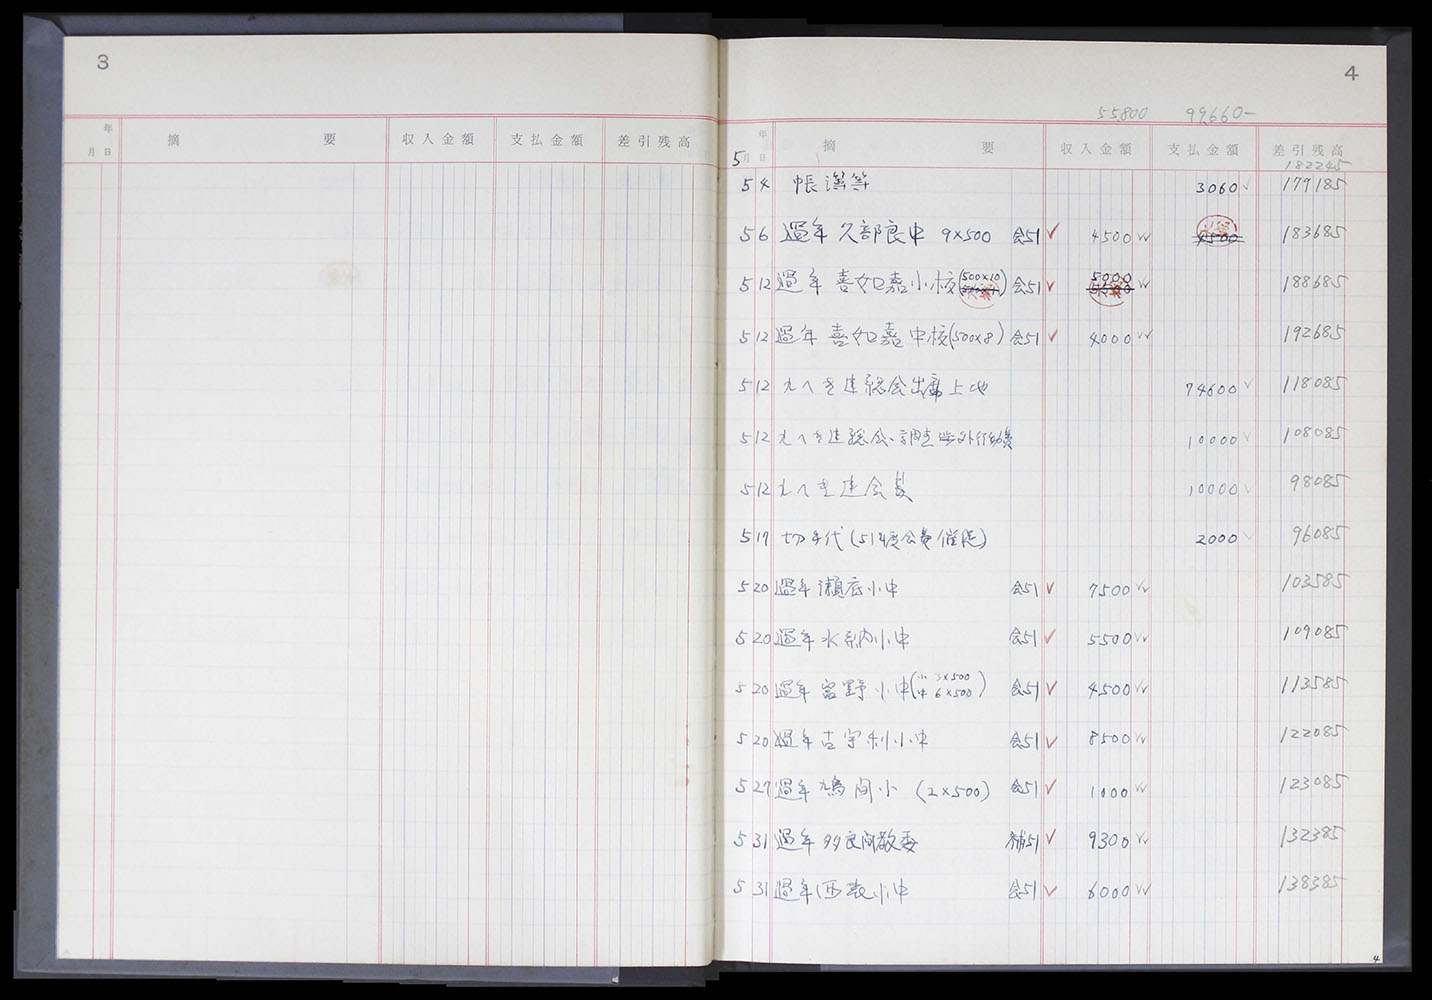 3
年
月 日 摘 要 収入金額 支払金額 差引残高
4
55800 99660-
年
5月 日 摘 要 収入金額 支払金額 差引残高
182245
5 4 帳簿等 3060 179185
5 6 過年 久部良中 9×500 会51 ✓ 4500 4500 183685
5 12 過年 喜如嘉小校(500×10) 会51 ✓ 5000 188685
5 12 過年 喜如嘉中校(500×8) 会51 ✓ 4000 192685
5 12 九へき連総会出席上地 74600 118085
5 12 九へき連総会、調査渉外行動費 10000 108085
5 12 九へき連会費 10000 98085
5 17 切手代(51年度会費催促) 2000 96085
5 20 過年 瀬底小中 会51 ✓ 7500 103585
5 20 過年 水納小中 会51 ✓ 5500 109085
5 20 過年 富野小中(小 3×500 中 6×500) 会51 ✓ 4500 113585
5 20 過年 古宇利小中 会51 ✓ 8500 122085
5 27 過年 鳩間小 (2×500) 会51 ✓ 1000 123085
5 31 過年 多良間教委 補51 ✓ 9300 132385
5 31 過年 西表小中 会51 ✓ 6000 138385
4